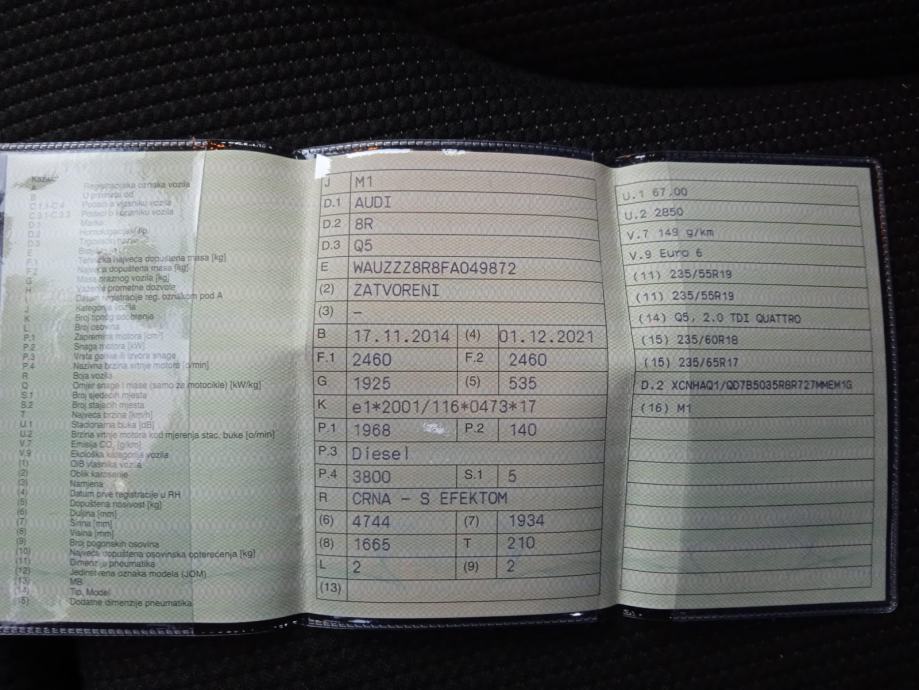 Registracijska oznaka vozila
C.1.1-C.4 Podaci o vlasniku vozila
C.3.1-C.3.3 Podaci o korisniku vozila
D.1 Marka
D.2
D.3
E
F.1 Tehnička najveća dopuštena masa [kg]
F.2 Najveća dopuštena masa [kg]
G Masa praznog vozila [kg]
H Važenje prometne dozvole
I Datum registracije reg. oznakom pod A
J Kategorija vozila
K Broj tipnog odobrenja
L Broj osovina
P.1 Zapremina motora [cm³]
P.2 Snaga motora [kW]
P.3 Vrsta goriva ili izvora snage
P.4 Nazivna brzina vrtnje motora [o/min]
R Boja vozila
Q Omjer snage i mase (samo za motocikle) [kW/kg]
S.1 Broj sjedećih mjesta
S.2 Broj stajaćih mjesta
T Najveća brzina [km/h]
U.1 Stacionarna buka [dB]
U.2 Brzina vrtnje motora kod mjerenja stac. buke [o/min]
V.7 Emisija CO₂ [g/km]
V.9 Ekološka kategorija vozila
(1) OIB vlasnika vozila
(2) Oblik karoserije
(3) Namjena
(4) Datum prve registracije u RH
(5) Dopuštena nosivost [kg]
(6) Duljina [mm]
(7) Širina [mm]
(8) Visina [mm]
(9) Broj pogonskih osovina
(10) Najveća dopuštena osovinska opterećenja [kg]
(11) Dimenzije pneumatika
(12) Jedinstvena oznaka modela (JOM)
(13) MB
(14) Tip, Model
(15) Dodatne dimenzije pneumatika
J M1
D.1 AUDI
D.2 8R
D.3 Q5
E WAUZZZ8R8FA049872
(2) ZATVORENI
(3) –
B 17.11.2014 (4) 01.12.2021
F.1 2460 F.2 2460
G 1925 (5) 535
K e1*2001/116*0473*17
P.1 1968 P.2 140
P.3 Diesel
P.4 3800 S.1 5
R CRNA – S EFEKTOM
(6) 4744 (7) 1934
(8) 1665 T 210
L 2 (9) 2
(13)
U.1 67,00
U.2 2850
V.7 149 g/km
V.9 Euro 6
(11) 235/55R19
(11) 235/55R19
(14) Q5, 2.0 TDI QUATTRO
(15) 235/60R18
(15) 235/65R17
D.2 XCNHAQ1/QD7B5035R8R727MMEM1G
(16) M1